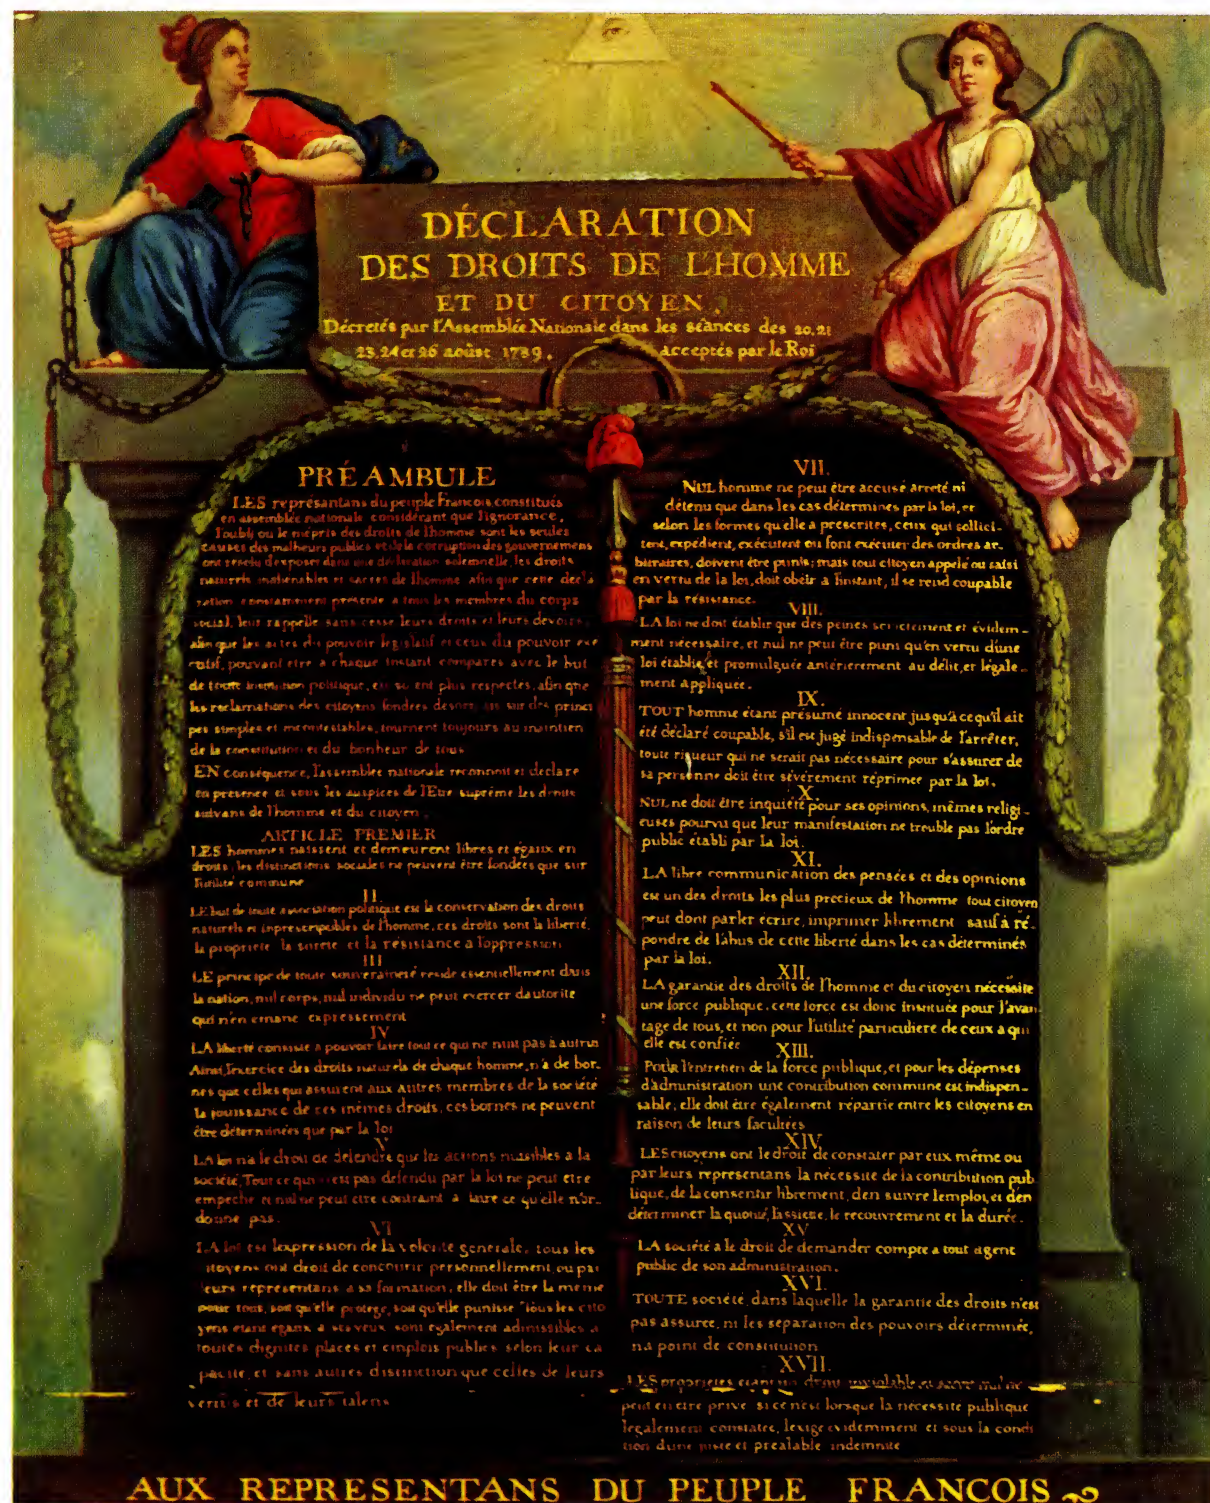 DÉCLARATION
DES DROITS DE L'HOMME
ET DU CITOYEN,
Décretés par l'Assemblée Nationale dans les séances des 20.21
23.24 et 26 août 1789, acceptés par le Roi
PRÉAMBULE
LES représantans du peuple Francois, constitués
en assemblée nationale considérant que l'ignorance,
l'oubli ou le mépris des droits de l'homme sont les seules
causes des malheurs publics et de la corruption des gouvernemens
ont résolu d'exposer dans une déclaration solemnelle, les droits
naturels inaliénables et sacrés de l'homme, afin que cette décla
ration constamment présente a tous les membres du corps
social, leur rappelle sans cesse leurs droits et leurs devoirs,
afin que les actes du pouvoir législatif et ceux du pouvoir exé
cutif, pouvant être a chaque instant comparés avec le but
de toute institution politique, en soient plus respectés, afin que
les reclamations des citoyens fondées désormais sur des princi
pes simples et incontestables, tournent toujours au maintien
de la constitution et du bonheur de tous
EN conséquence, l'assemblée nationale reconnoit et declare
en presence et sous les auspices de l'Etre suprême les droits
suivans de l'homme et du citoyen,
ARTICLE PREMIER
LES hommes naissent et demeurent libres et égaux en
droits, les distinctions sociales ne peuvent être fondées que sur
l'utilité commune
II.
LE but de toute association politique est la conservation des droits
naturels et inprescriptibles de l'homme, ces droits sont la liberté,
la propriete la sureté et la résistance a l'oppression
III
LE principe de toute souveraineté reside essentiellement dans
la nation, nul corps, nul individu ne peut exercer dautorité
qui n'en emane expressement
IV
LA liberté consiste a pouvoir faire tout ce qui ne nuit pas à autrui
Ainsi, l'exercice des droits naturels de chaque homme, n'a de bor-
nes que celles qui assurent aux autres membres de la société
la jouissance de ces mêmes droits, ces bornes ne peuvent
être déterminées que par la loi
V
LA loi n'a le droit de défendre que les actions nuisibles a la
société, Tout ce qui n'est pas défendu par la loi ne peut etre
empeché et nul ne peut etre contraint a faire ce qu'elle n'or-
donne pas.
VI
LA loi est lexpression de la volonté generale, tous les
citoyens ont droit de concourir personnellement, ou par
leurs représentans a sa formation, elle doit être la meme
pour tous, soit qu'elle protege, soit qu'elle punisse Tous les cito
yens etant egaux a ses yeux sont également admissibles a
toutes dignites places et emplois publics selon leur ca
pacité, et sans autres distinction que celles de leurs
vertus et de leurs talens
VII.
NUL homme ne peut être accusé, arreté ni
détenu que dans les cas détermines par la loi, et
selon les formes qu'elle a prescrites, ceux qui sollici-
tent, expédient, exécutent ou font exécuter des ordres ar-
bitraires, doivent être punis; mais tout citoyen appelé ou saisi
en vertu de la loi, doit obéir à l'instant, il se rend coupable
par la résistance.
VIII.
LA loi ne doit établir que des peines strictement et évidem-
ment nécessaire, et nul ne peut être puni qu'en vertu d'une
loi établie, et promulguée antérierement au délit, et légale-
ment appliquée.
IX.
TOUT homme étant présumé innocent jusqu'à ce qu'il ait
été déclaré coupable, s'il est jugé indispensable de l'arrêter,
toute rigueur qui ne serait pas nécessaire pour s'assurer de
sa personne doit être sévèrement réprimee par la loi.
X.
NUL ne doit être inquiété pour ses opinions, mêmes religi-
euses pourvu que leur manifestation ne trouble pas l'ordre
public établi par la loi.
XI.
LA libre communication des pensées et des opinions
est un des droits les plus precieux de l'homme tout citoyen
peut dont parler écrire, imprimer librement sauf à ré-
pondre de l'abus de cette liberté dans les cas déterminés
par la loi.
XII.
LA garantie des droits de l'homme et du citoyen nécessite
une force publique, cette force est donc instituée pour l'avan
tage de tous, et non pour l'utilité particuliere de ceux a qui
elle est confiée
XIII.
POUR l'entretien de la force publique, et pour les dépenses
d'administration une contribution commune est indispen-
sable, elle doit être également répartie entre les citoyens en
raison de leurs facultées
XIV
LES citoyens ont le droit de constater par eux même ou
par leurs representans la nécessité de la contribution pub
lique, de la consentir librement, d'en suivre lemploi, et d'en
déterminer la quotité, lassiette, le recouvrement et la durée.
XV
LA société a le droit de demander compte a tout agent
public de son administration.
XVI.
TOUTE société, dans laquelle la garantie des droits n'est
pas assurée, ni les séparation des pouvoirs déterminée,
na point de constitution
XVII.
LES proprietes etant un droit inviolable et sacré nul ne
peut en etre privé si ce n'est lorsque la necessité publique
légalement constatée, lexige evidemment et sous la condi
tion d'une juste et prealable indemnite
AUX REPRESENTANS DU PEUPLE FRANCOIS